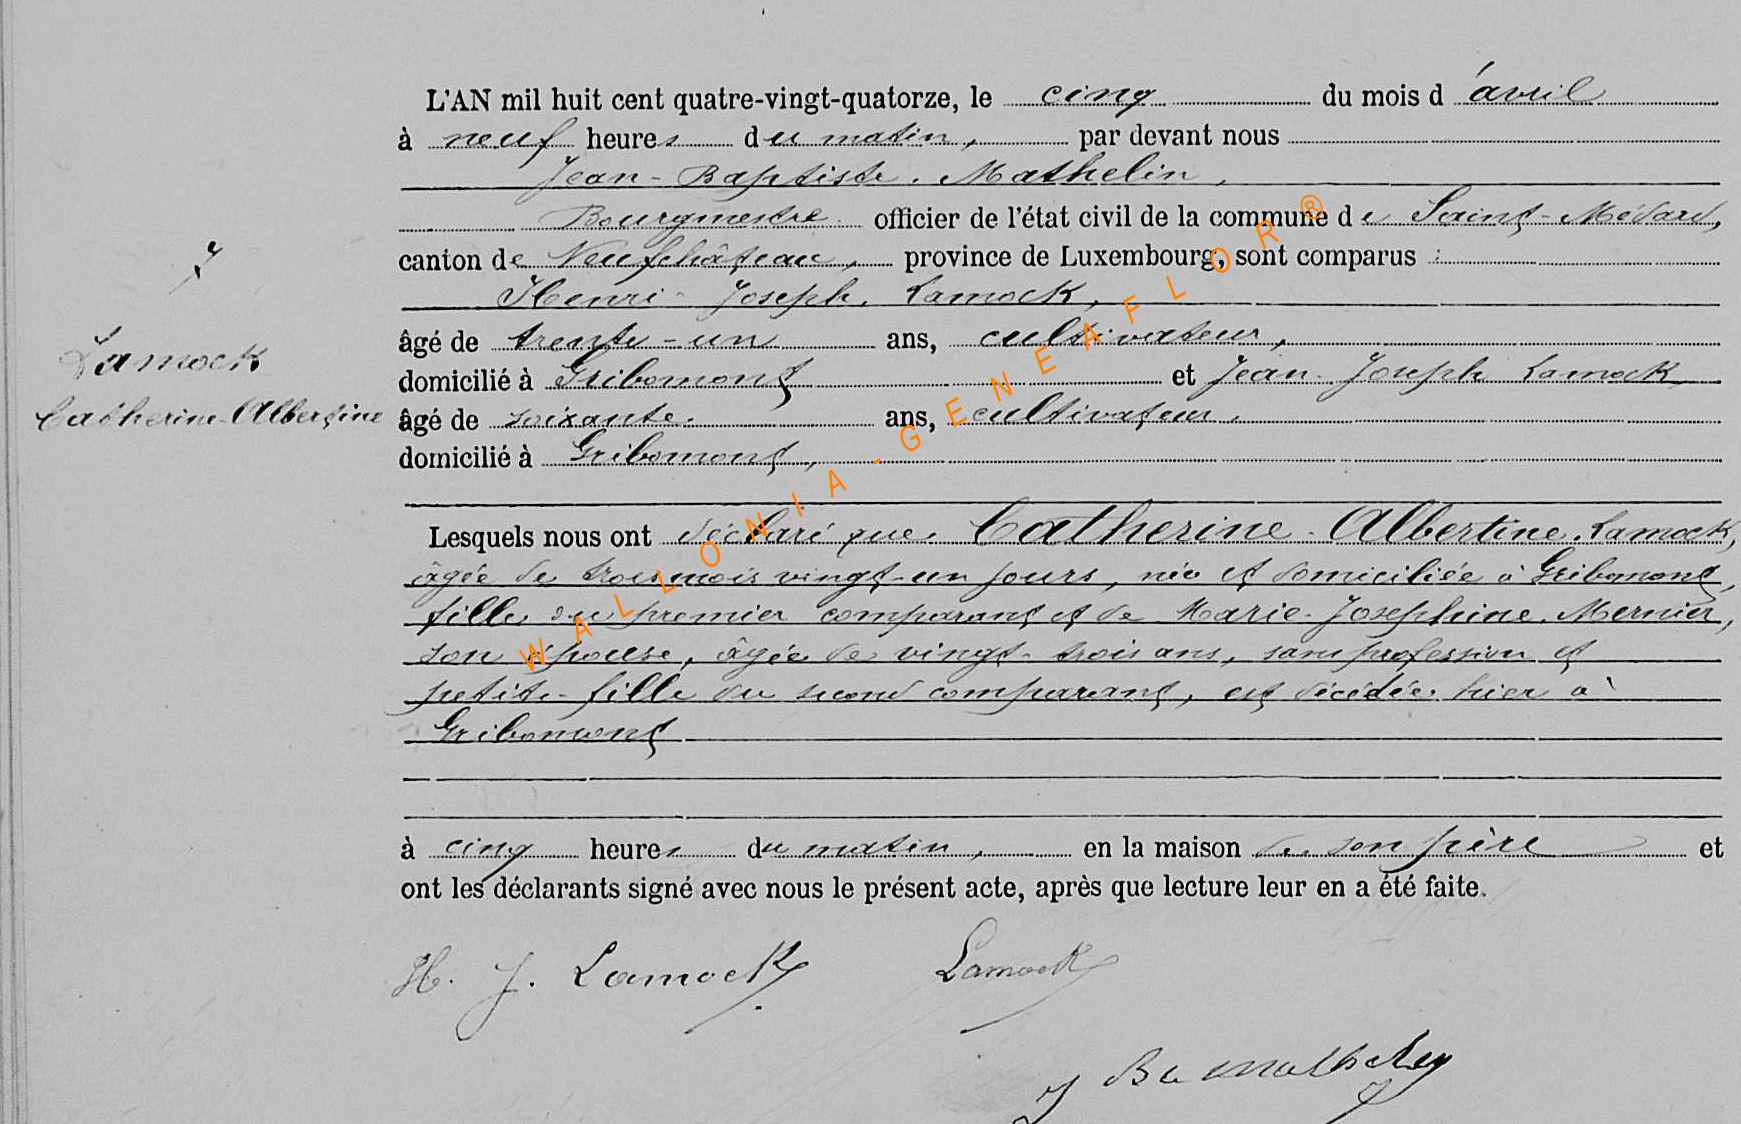 L'AN mil huit cent quatre-vingt-quatorze, le cinq du mois d'avril
à neuf heures du matin, par devant nous
Jean-Baptiste Mathelin,
Bourgmestre officier de l'état civil de la commune de Saint-Médard,
canton de Neufchâteau, province de Luxembourg, sont comparus :
Henri-Joseph Lamock,
âgé de trente-un ans, cultivateur,
domicilié à Gribomont et Jean-Joseph Lamock
âgé de soixante ans, cultivateur,
domicilié à Gribomont,
Lamock
Catherine-Albertine
Lesquels nous ont déclaré que Catherine-Albertine Lamock,
âgée de trois mois vingt-un jours, née et domiciliée à Gribomont,
fille du premier comparant et de Marie-Josephine Mernier,
son épouse, âgée de vingt-trois ans, sans profession et
petite-fille du second comparant, est décédée hier à
Gribomont
à cinq heures du matin, en la maison de son père et
ont les déclarants signé avec nous le présent acte, après que lecture leur en a été faite.
H. J. Lamock Lamock
J Bte Mathelin
WALLONIA-GENEAFLOR®